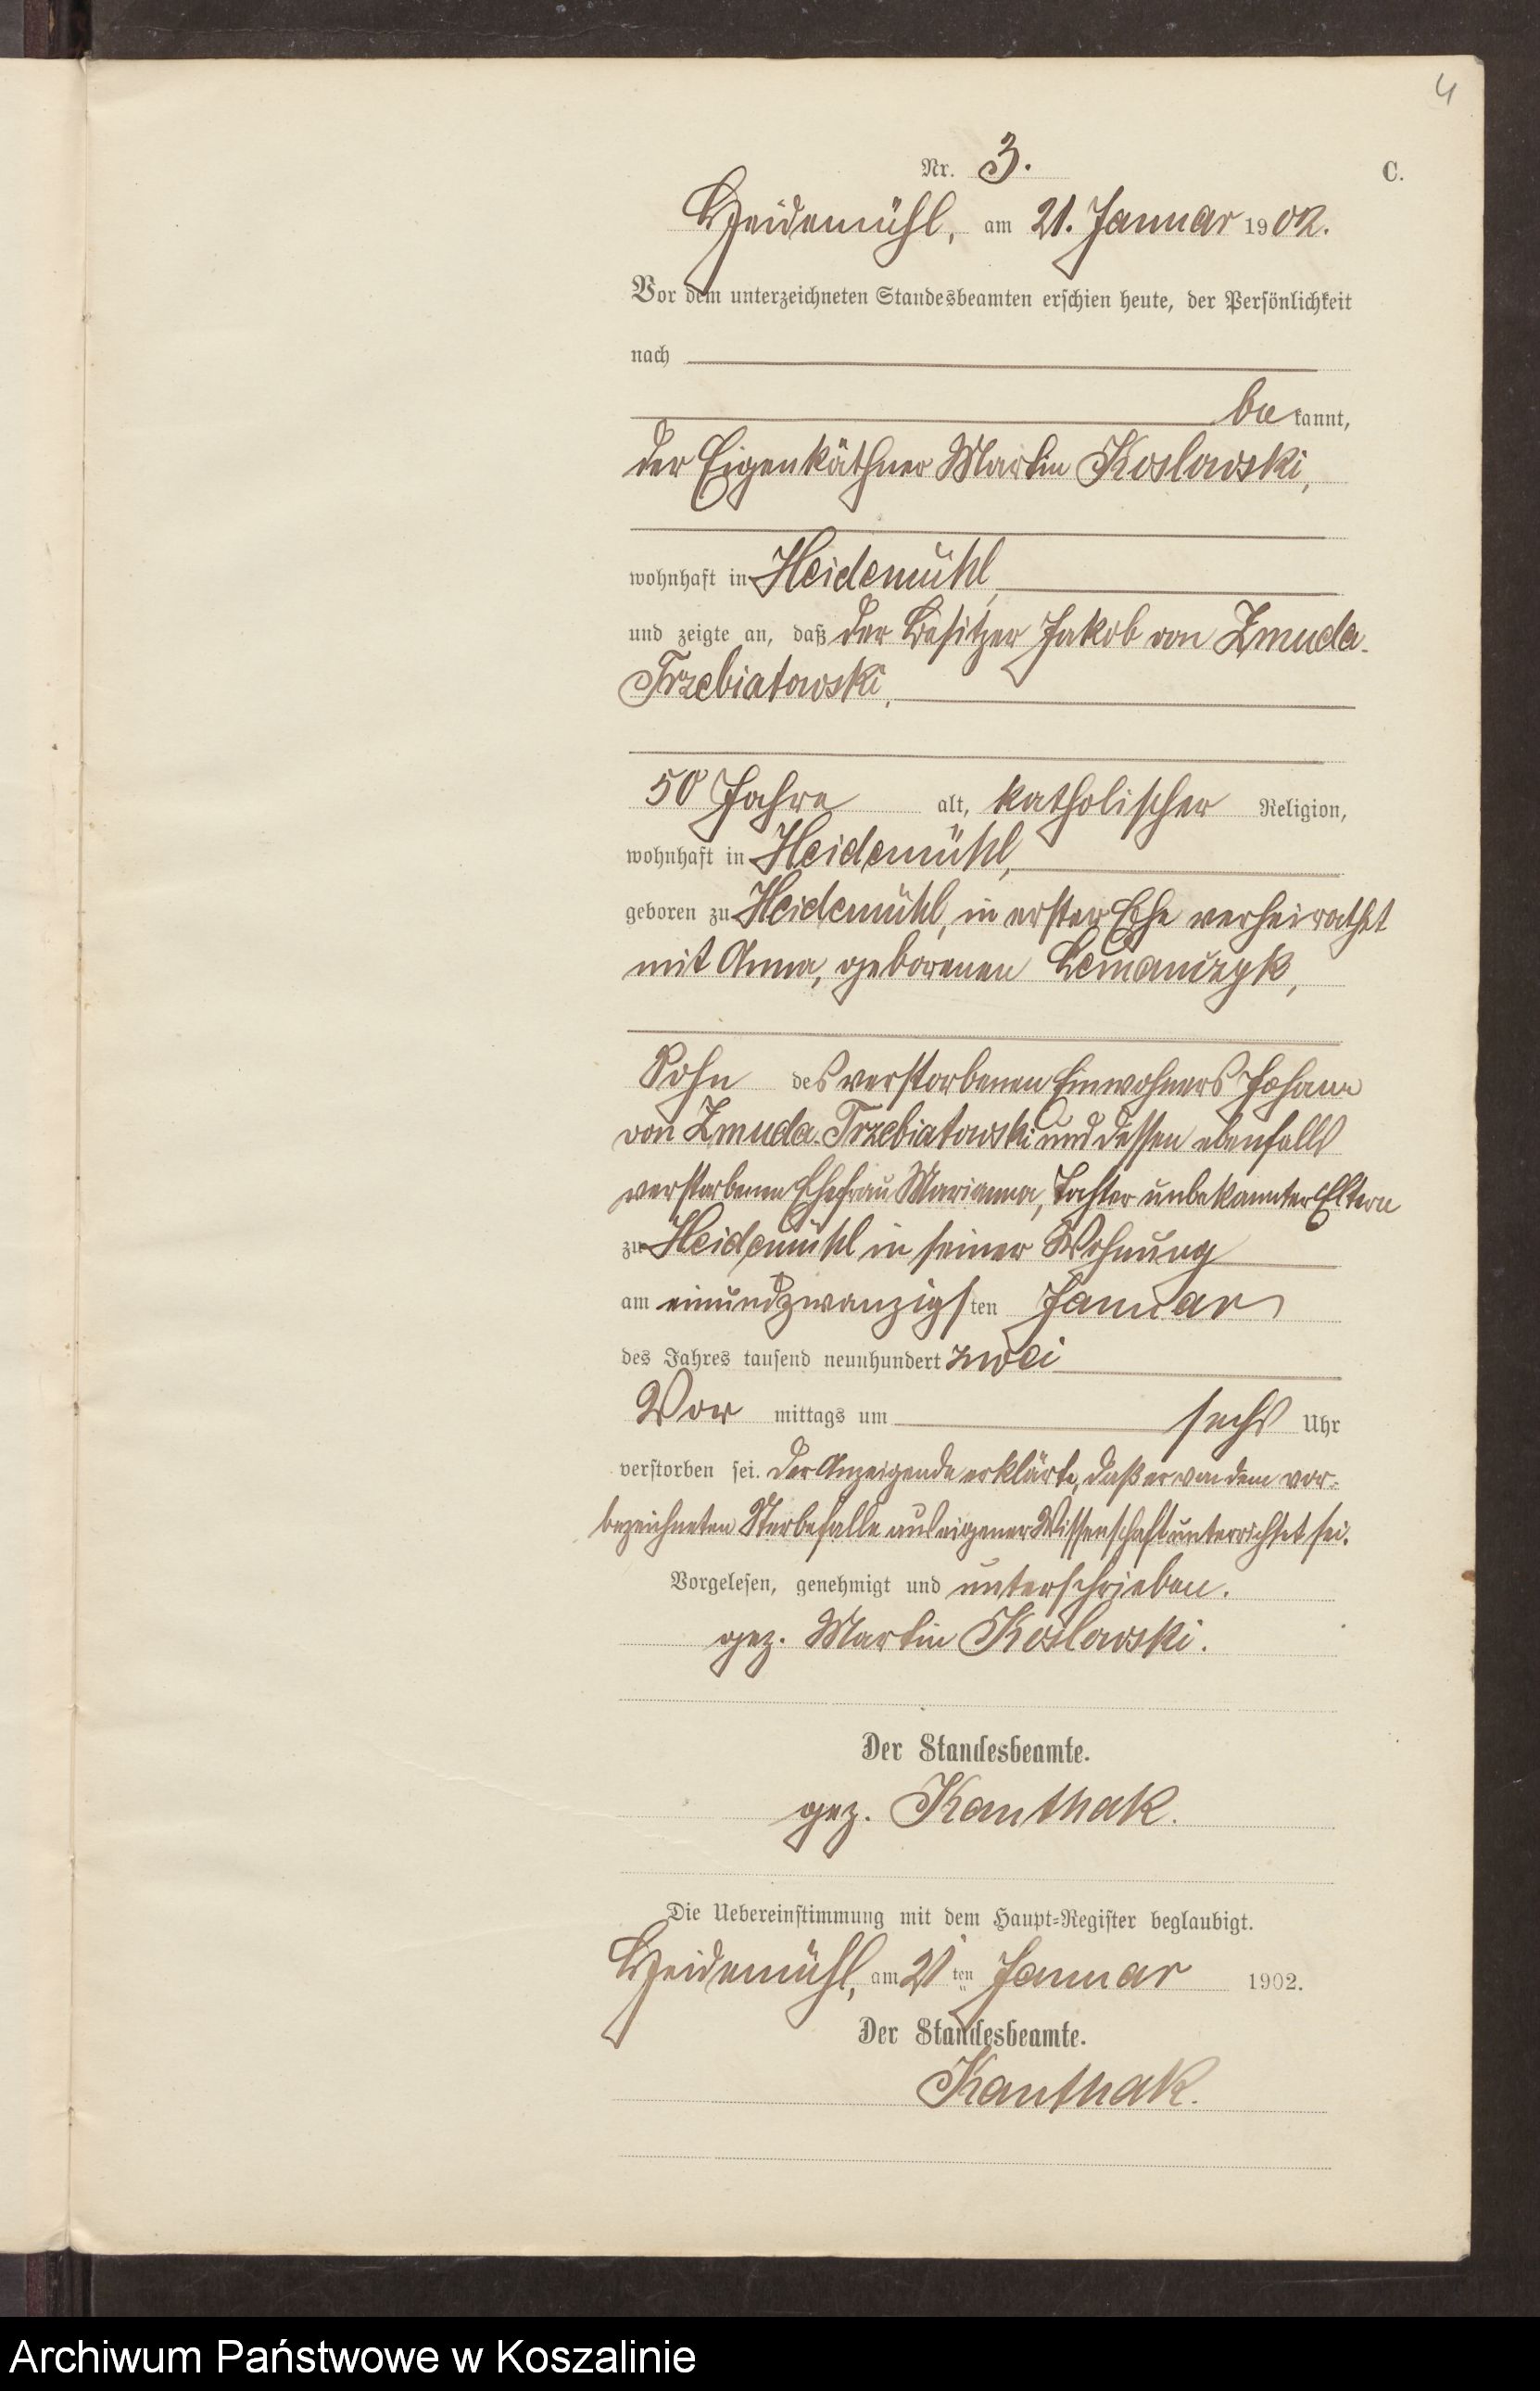 4
Nr. 3.
C.
Heidemühl, am 21. Januar 1902.
Vor dem unterzeichneten Standesbeamten erschien heute, der Persönlichkeit
nach
be kannt,
der Eigenkäthner Martin Koslowski,
wohnhaft in Heidemühl,
und zeigte an, daß der Besitzer Jakob von Zmuda-
Trzebiatowski,
50 Jahre alt, katholischer Religion,
wohnhaft in Heidemühl,
geboren zu Heidemühl, in erster Ehe verheirathet
mit Anna, geborenen Lemanczyk,
Sohn des verstorbenen Einwohners Johann
von Zmuda-Trzebiatowski und dessen ebenfalls
verstorbenen Ehefrau Marianna, Tochter unbekannter Eltern
zu Heidemühl in seiner Wohnung
am einundzwanzigsten Januar
des Jahres tausend neunhundert zwei
Vor mittags um sechs Uhr
verstorben sei. Der Anzeigende erklärte, daß er von dem vor-
bezeichneten Sterbefalle aus eigener Wissenschaft unterrichtet sei.
Vorgelesen, genehmigt und unterschrieben.
gez. Martin Koslowski.
Der Standesbeamte.
gez. Kanthak.
Die Uebereinstimmung mit dem Haupt-Register beglaubigt.
Heidemühl, am 21ten Januar 1902.
Der Standesbeamte.
Kanthak.
Archiwum Państwowe w Koszalinie